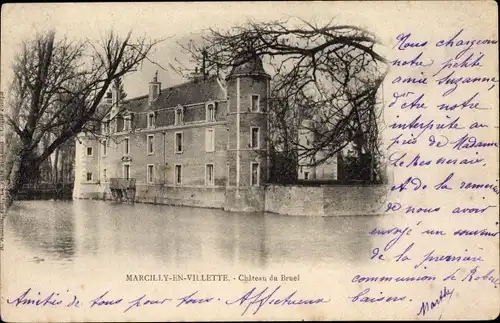 Nous chargeons
notre petite
amie Suzanne
d'être notre
interprète auprès
près de Madame
Le
A de la remercier
de nous avoir
envoyé un souvenir
de la première
communion de Robert
MARCILLY-EN-VILLETTE. - Château du Bruel
Amitiés de tous pour tous. Affectueux
baisers.
Marthe